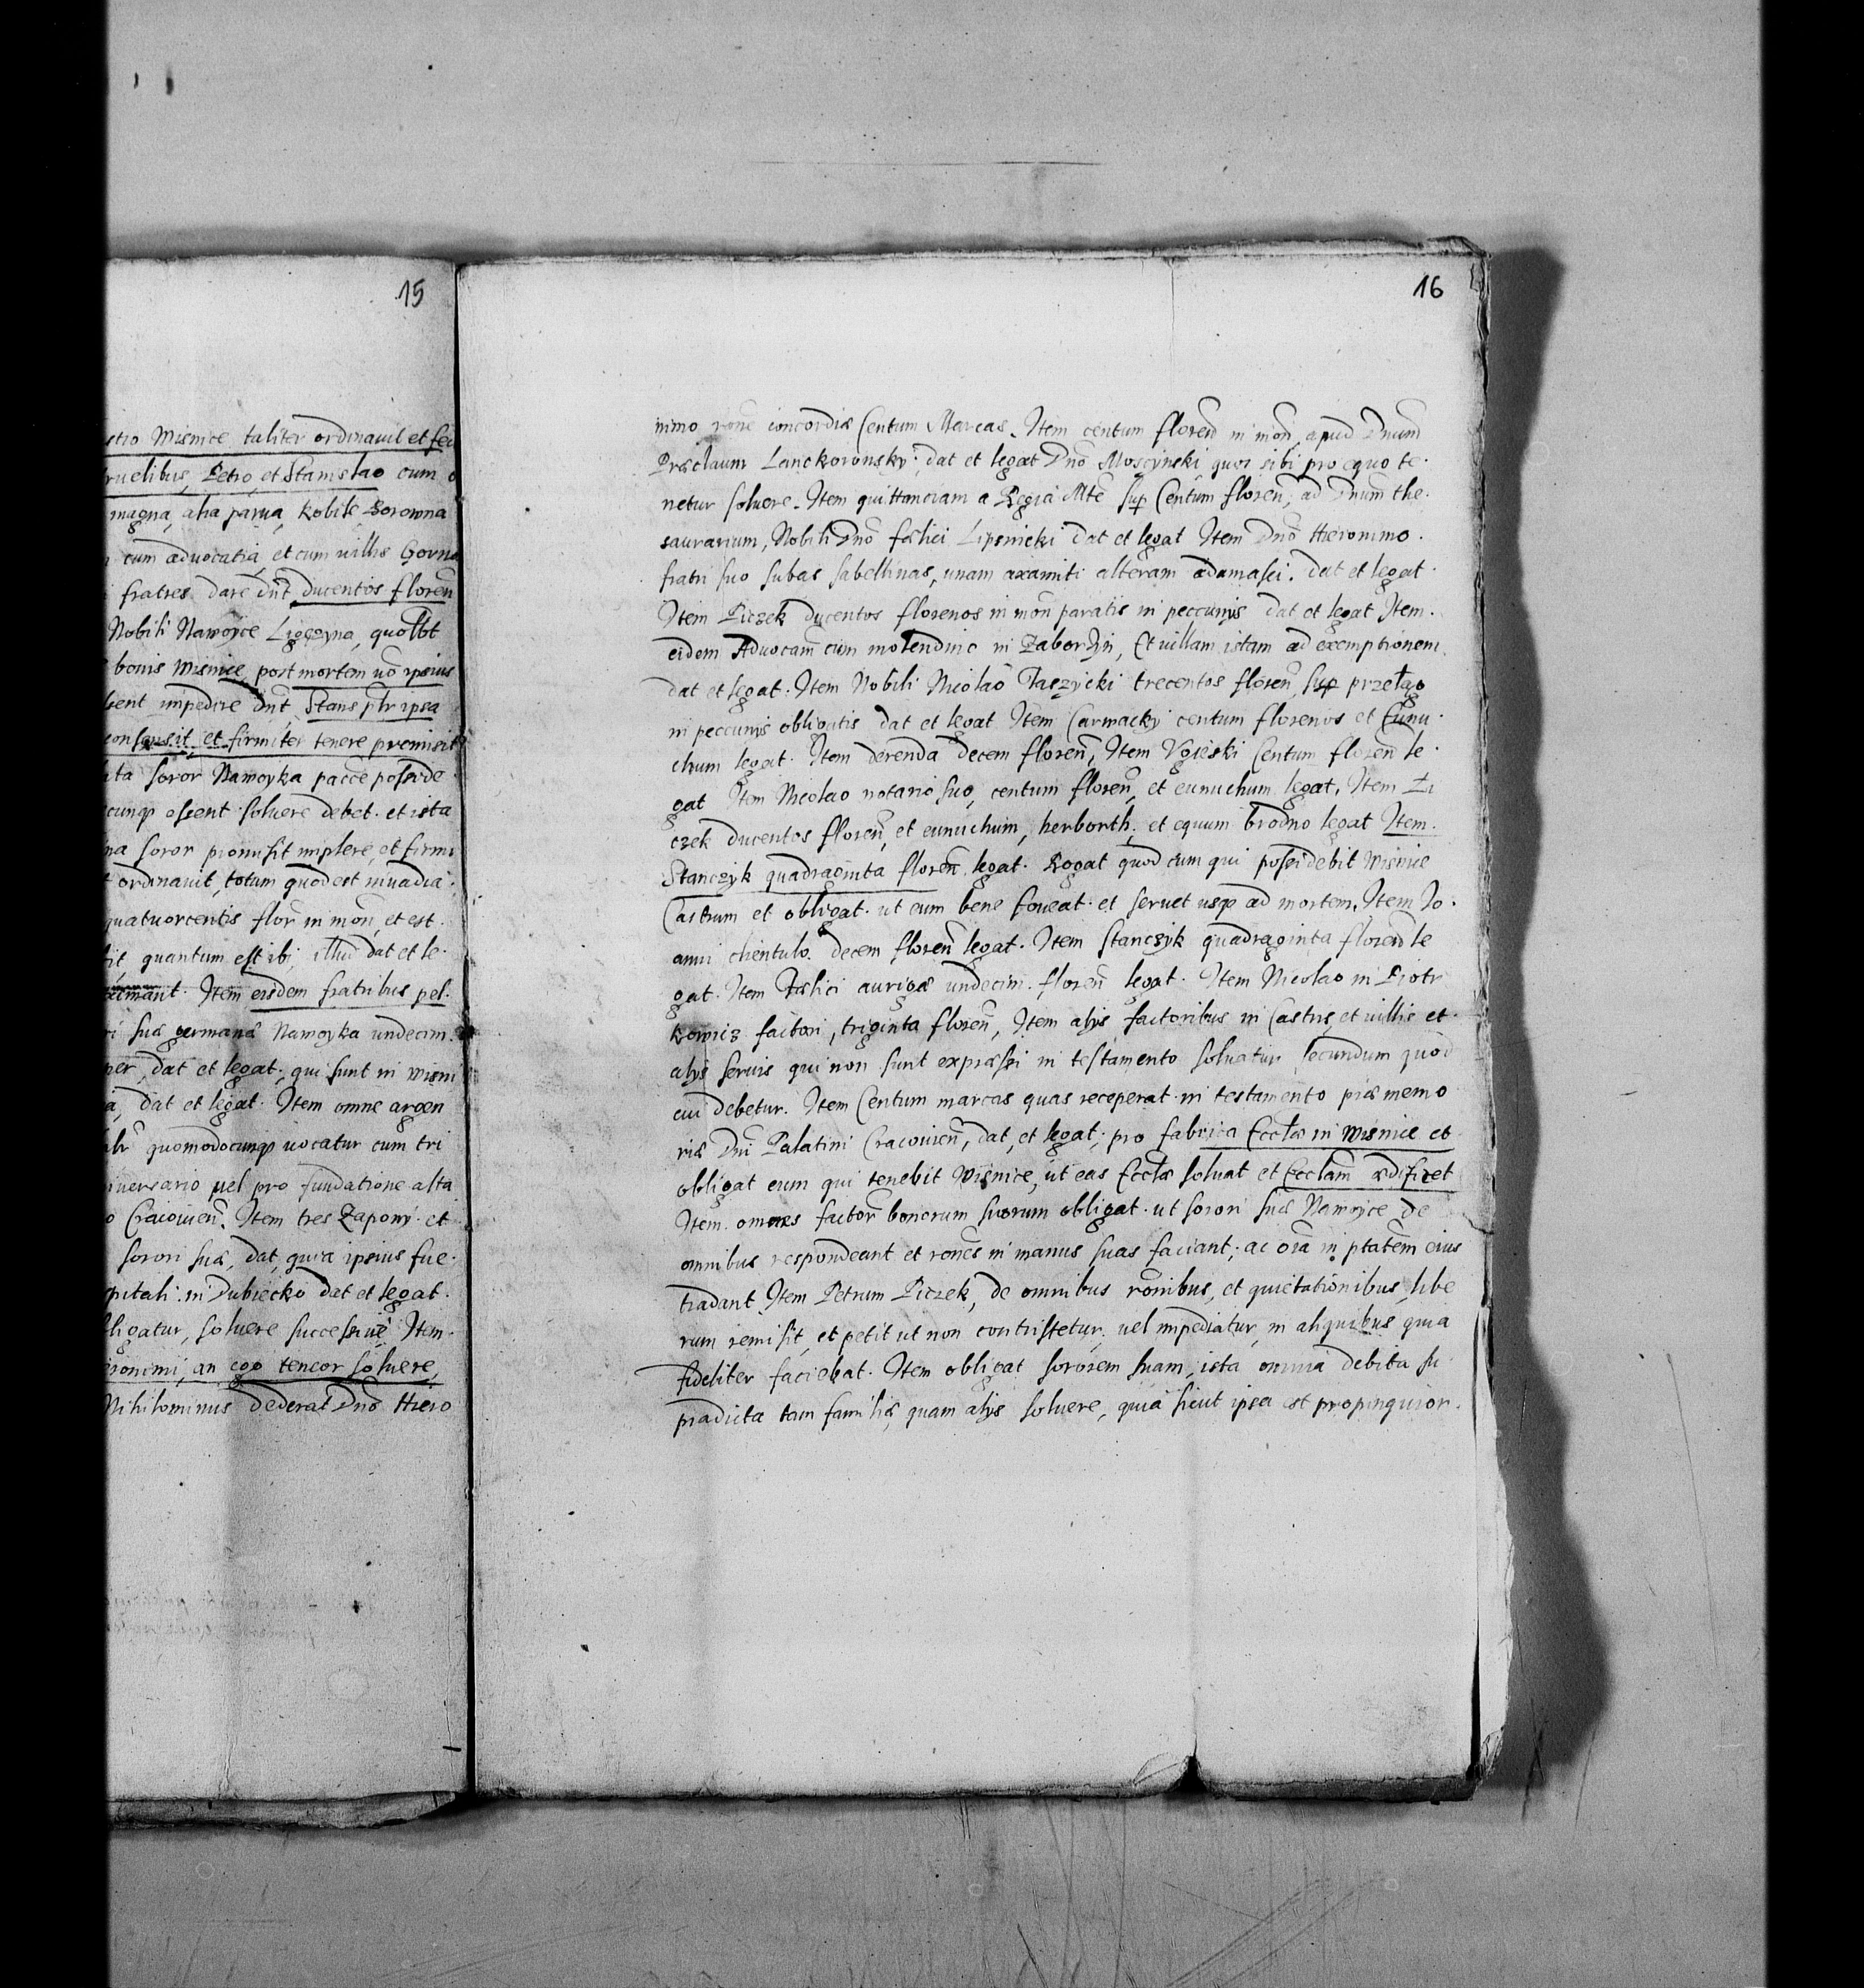 15
stro Wisnice taliter ordinauit et fec
ruelibus, Petro, et Stanislao cum
magna, alia parua, kobile Borowna
cum aduocatia, et cum villis Gorna
fratres dare dnt ducentos floren̄
Nobili Namoyce Ligęzyna, quolbt
bonis Wisnice, post mortem uō ipsius
bent impedire dnt, Stans pltr ipsa
consensit, et firmiter tenere promisit
ata soror Namoyka pacce posside
cunqz essent soluere debet. et ista
na soror promisit implere, et firmi
ordinauit, totum quod est inuadia.
quatuorcentis flor̄ in mon̄, et est.
it quantum est ibi, illud dat et le.
Item eisdem fratribus pel.
ri suæ germanæ Namoyka undecim.
per, dat et legat, qui sunt in Wisni
a, dat et legat. Item omne argen
quomodocunqz uocatur cum tri
niuersario uel pro fundatione alta
o Cracouien̄. Item tres Zapony et
sorori suæ, dat, quia ipsius fue.
pitali in Dubiecko dat et legat.
ligatur, soluere successiuè Item.
eronimi, an ego teneor soluere,
Nihilominus dederat Dnō Hiero
16
nimo rōne concordiæ Centum Marcas. Item centum floren̄ in mon̄, apud Dnum̄
Præclaum Lanckoronsky. dat et legat Dnō Moszynski quos sibi pro equo te.
netur soluere. Item quittanciam a Regia Mtē sup Centum floren̄, ad Dnum̄ the.
saurarium, Nobili Dnō fælici Lipenicki dat et legat Item Dnō Hieronimo.
fratri suo subas sabellinas, unam axamiti alteram adamasci. dat et legat.
Item Piczek ducentos florenos in mon̄ paratis in peccunijs dat et legat Item.
eidem Aduocam̄ cum molendino in Zaborzyn, Et uillam istam ad exemptionem
dat et legat. Item Nobili Nicolao Taszycki trecentos floren̄ sup przełąg
in peccunijs obligatis dat et legat Item Czarnacky centum florenos et Eunu.
chum legat. Item derenda decem floren̄, Item Voieski Centum floren̄ le.
gat Item Nicolao notario suo, centum floren̄, et eunuchum legat. Item Pi
czek ducentos floren̄, et eunuchum, herborth, et equum brodno legat Item.
Stanczyk quadraginta floren̄ legat. Rogat quod eum qui possidebit Wisnice
Castrum et obligat. ut eum bene foueat. et seruet usqz ad mortem. Item Jo.
anni clientulo. decem floren̄ legat. Item Stanczyk quadraginta floren̄ le
gat. Item Fælici aurigæ undecim. floren̄ legat. Item Nicolao in Piotr
kowicz factori, triginta floren̄, Item alijs factoribus in Castris, et uillis et.
alijs seruis qui non sunt expræssi in testamento soluatur secundum quod
cui debetur. Item Centum marcas quas receperat in testamento piæ memo
riæ Dni Palatini Cracouien̄, dat, et legat; pro fabrica Ecctæ in Wisnice et
obligat eum qui tenebit Wisnice, ut eas Ecctæ soluat et Ecclam̄ ædificet
Item. omnes factor̄ bonorum suorum obligat. ut sorori suæ Namoyce de
omnibus respondeant et rōnes in manus suas faciant; ac oīa in ptatem̄ eius
tradant. Item Petrum Piczek, de omnibus rōnibus, et quietationibus, libe
rum remisit, et petit ut non contristetur. uel impediatur, in aliquibus quia
fideliter faciebat. Item obligat sororem suam, ista omnia debita su
pradicta tam familiæ, quam alijs soluere, quia sicut ipsa est propinquior.